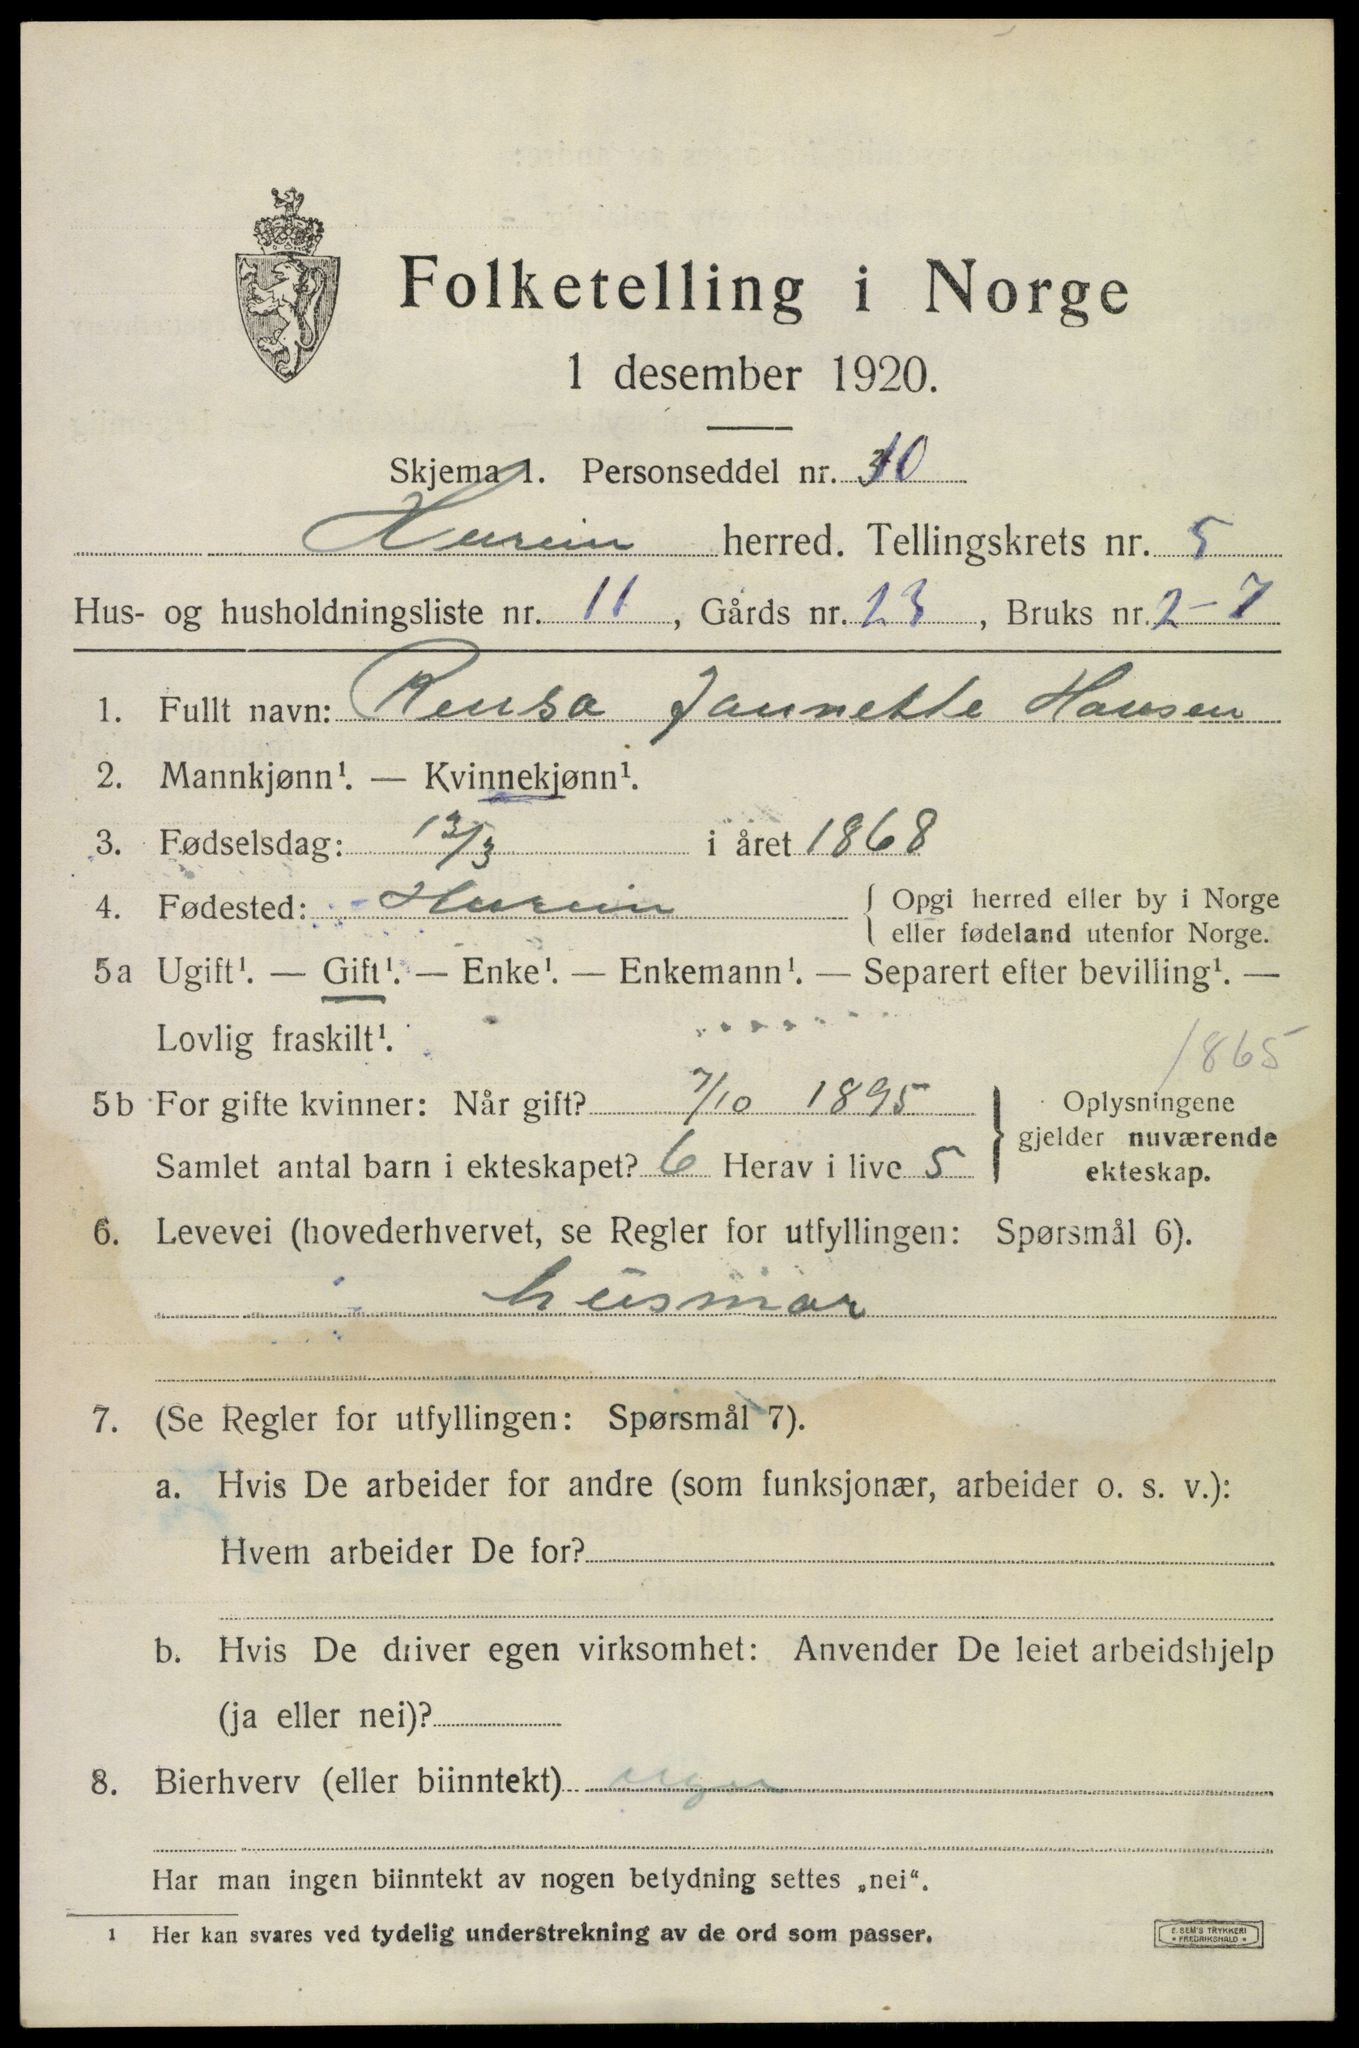 Folketelling i Norge
1 desember 1920.
Skjema 1. Personseddel nr. 10
Hurum herred. Tellingskrets nr. 5
Hus- og husholdningsliste nr. 11, Gårds nr. 23, Bruks nr. 2-7
1. Fullt navn: Jannette Hansen
2. Mannkjønn¹. — Kvinnekjønn¹.
3. Fødselsdag: 13/3 i året 1868
4. Fødested: Hurum { Opgi herred eller by i Norge
eller fødeland utenfor Norge.
5a Ugift¹. — Gift¹. — Enke¹. — Enkemann¹. — Separert efter bevilling¹. —
Lovlig fraskilt¹.
1865
5b For gifte kvinner: Når gift? 7/10 1895 } Oplysningene
gjelder nuværende
Samlet antal barn i ekteskapet? 6 Herav i live 5 ekteskap.
6. Levevei (hovederhvervet, se Regler for utfyllingen: Spørsmål 6).
husmor
7. (Se Regler for utfyllingen: Spørsmål 7).
a. Hvis De arbeider for andre (som funksjonær, arbeider o. s. v.):
Hvem arbeider De for?
b. Hvis De driver egen virksomhet: Anvender De leiet arbeidshjelp
(ja eller nei)?
8. Bierhverv (eller biinntekt)
Har man ingen biinntekt av nogen betydning settes „nei“.
¹ Her kan svares ved tydelig understrekning av de ord som passer.
E. SEM'S TRYKKERI
FREDRIKSHALD